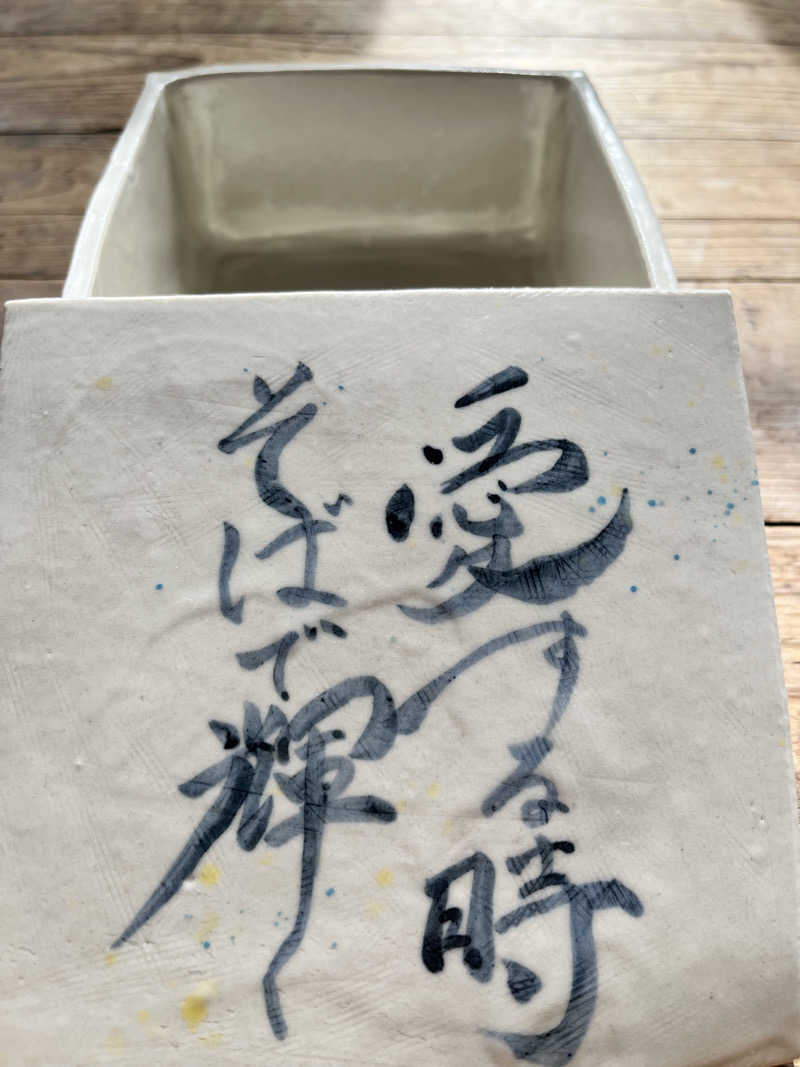 愛する時
そばで輝